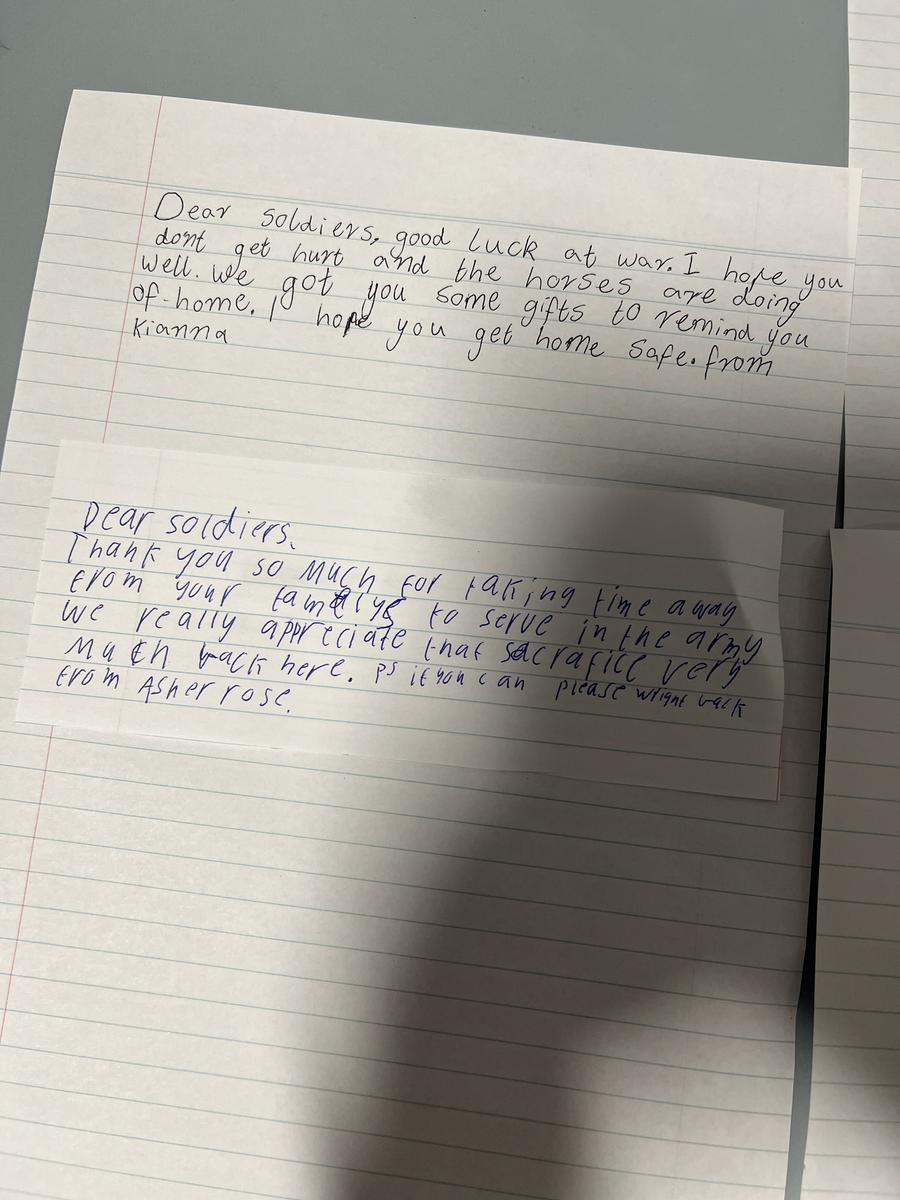 Dear soldiers, good luck at war. I hope you
dont get hurt and the horses are doing
well. We got you some gifts to remind you
of home. I hope you get home safe. from
Kianna
Dear soldiers.
Thank you so much for taking time away
from your familys to serve in the army
We really appreciate that sacrafice very
much back here. ps if you can please wright back
from Asher rose.